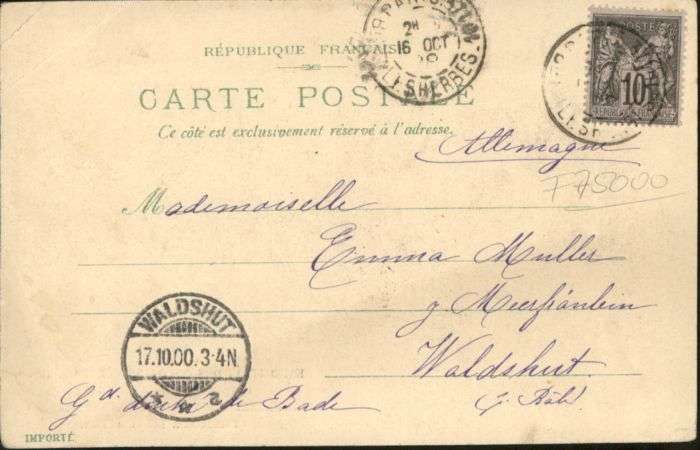 PARIS
2
16 OCT
MALESHERBES
POSTE
10
RÉPUBLIQUE FRANÇAISE
CARTE POSTALE
Ce côté est exclusivement réservé à l'adresse.
Allemagne
F75000
Mademoiselle
Emma Muller
z Meerfräulein
Waldshut
Gd. duché de Bade
WALDSHUT
17.10.00.3-4N
2
IMPORTÉ